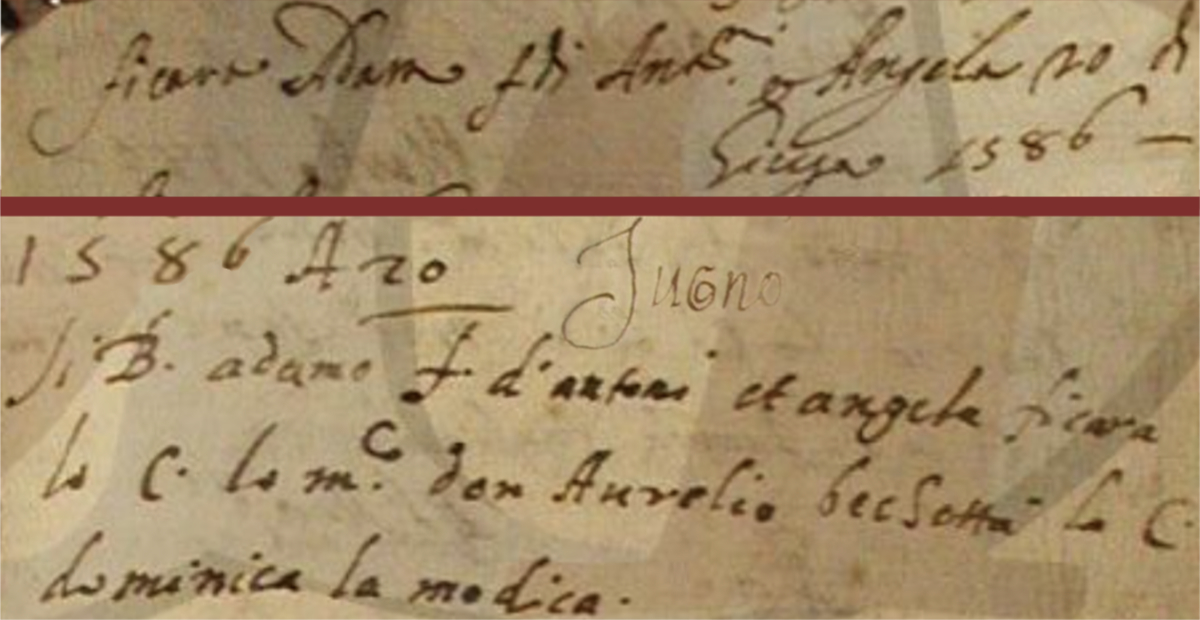 ficara Adam f di Ant.i e Angela 20 di
Giugn 1586 —
1586 A 20 Jugno
Si B. adamo f. d'antoni et angela ficara
lo C. lo m.co don Aurelio becSotta la C.
dominica la modica.